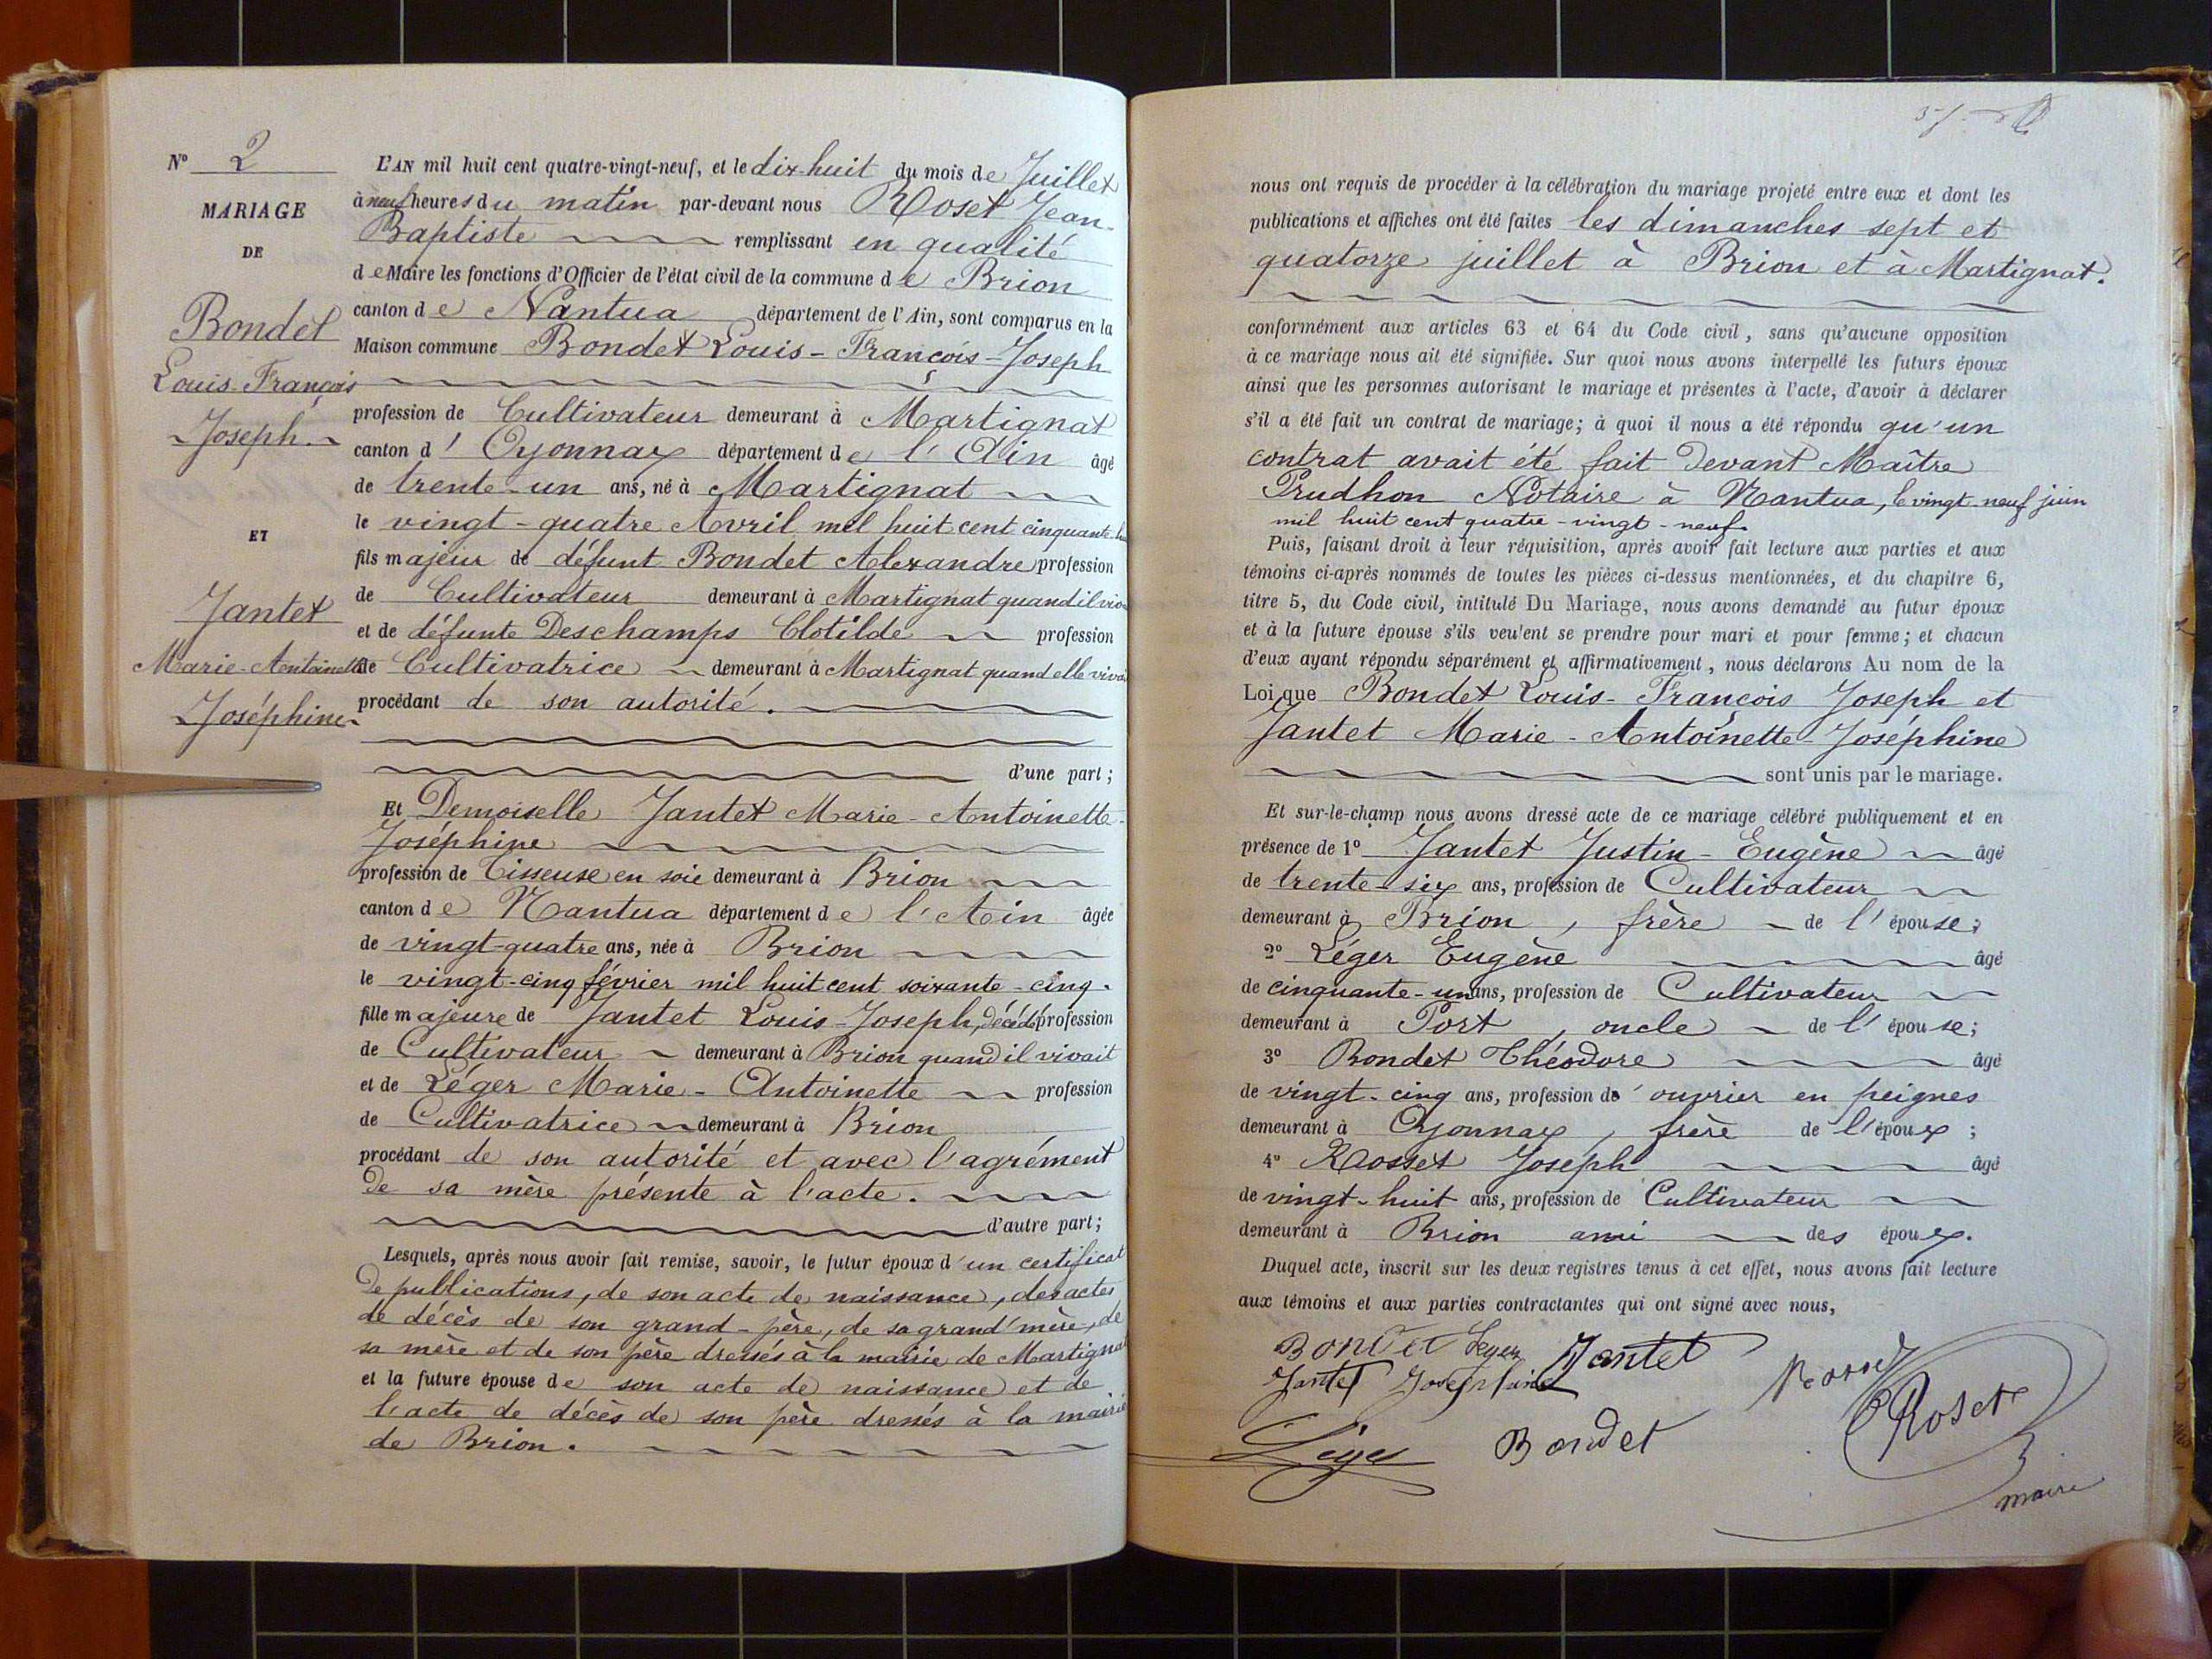 N° 2
MARIAGE
DE
Bondet
Louis-François
Joseph.
ET
Jantet
Marie-Antoinette
Joséphine
L'AN mil huit cent quatre-vingt-neuf, et le dix-huit du mois de Juillet
à neuf heures du matin par-devant nous Roset Jean-
Baptiste remplissant en qualité
de Maire les fonctions d'Officier de l'état civil de la commune de Brion
canton de Nantua département de l'Ain, sont comparus en la
Maison commune Bondet Louis-François-Joseph
profession de Cultivateur demeurant à Martignat
canton d'Oyonnax département de l'Ain âgé
de trente-un ans, né à Martignat
le vingt-quatre Avril mil huit cent cinquante-
fils majeur de défunt Bondet Alexandre profession
de Cultivateur demeurant à Martignat quand il
et de défunte Deschamps Clotilde profession
de Cultivatrice demeurant à Martignat quand elle
procédant de son autorité.
d'une part;
Et Demoiselle Jantet Marie-Antoinette-
Joséphine
profession de Tisseuse en soie demeurant à Brion
canton de Nantua département de l'Ain âgée
de vingt-quatre ans, née à Brion
le vingt-cinq février mil huit cent soixante-cinq.
fille majeure de Jantet Louis-Joseph, décédé profession
de Cultivateur demeurant à Brion quand il vivait
et de Léger Marie-Antoinette profession
de Cultivatrice demeurant à Brion
procédant de son autorité et avec l'agrément
de sa mère présente à l'acte.
d'autre part;
Lesquels, après nous avoir fait remise, savoir, le futur époux d'un certificat
de publications, de son acte de naissance, des actes
de décès de son grand-père, de sa grand'mère, de
sa mère et de son père dressés à la mairie de Martignat
et la future épouse de son acte de naissance et de
l'acte de décès de son père dressés à la mairie
de Brion.
nous ont requis de procéder à la célébration du mariage projeté entre eux et dont les
publications et affiches ont été faites les dimanches sept et
quatorze juillet à Brion et à Martignat.
conformément aux articles 63 et 64 du Code civil, sans qu'aucune opposition
à ce mariage nous ait été signifiée. Sur quoi nous avons interpellé les futurs époux
ainsi que les personnes autorisant le mariage et présentes à l'acte, d'avoir à déclarer
s'il a été fait un contrat de mariage; à quoi il nous a été répondu qu'un
contrat avait été fait devant Maître
Prudhon Notaire à Nantua, le vingt-neuf juin
mil huit cent quatre-vingt-neuf.
Puis, faisant droit à leur réquisition, après avoir fait lecture aux parties et aux
témoins ci-après nommés de toutes les pièces ci-dessus mentionnées, et du chapitre 6,
titre 5, du Code civil, intitulé Du Mariage, nous avons demandé au futur époux
et à la future épouse s'ils veulent se prendre pour mari et pour femme; et chacun
d'eux ayant répondu séparément et affirmativement, nous déclarons Au nom de la
Loi que Bondet Louis-François Joseph et
Jantet Marie-Antoinette-Joséphine
sont unis par le mariage.
Et sur-le-champ nous avons dressé acte de ce mariage célébré publiquement et en
présence de 1° Jantet Justin-Eugène âgé
de trente-six ans, profession de Cultivateur
demeurant à Brion, frère de l'épouse;
2° Léger Eugène âgé
de cinquante-un ans, profession de Cultivateur
demeurant à Port, oncle de l'épouse;
3° Bondet Théodore âgé
de vingt-cinq ans, profession d'ouvrier en peignes
demeurant à Oyonnax, frère de l'époux;
4° Rosset Joseph âgé
de vingt-huit ans, profession de Cultivateur
demeurant à Brion ami des époux.
Duquel acte, inscrit sur les deux registres tenus à cet effet, nous avons fait lecture
aux témoins et aux parties contractantes qui ont signé avec nous,
Bondet Leger Jantet
Jantet Joséphine
Léger Bondet Roset
maire